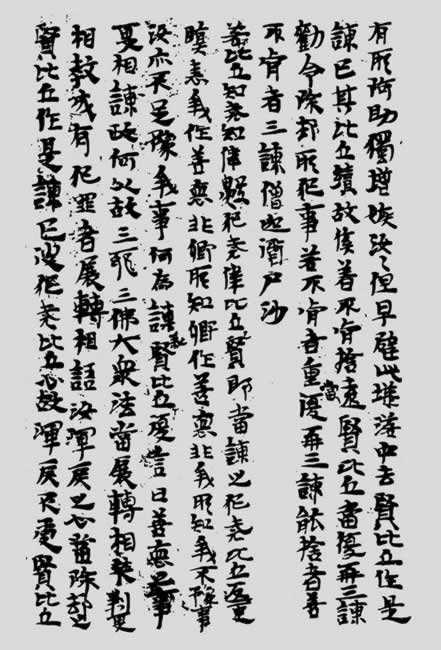 有所阿助獨增嫉汝々但早避此落中去賢比丘作是
諫已其比丘續故不肯捨遠賢比丘當復再三諫
勸令除却所犯事若不肯者當重復再三諫能捨者善
不肯者三諫僧迦尸沙
若比丘知知律犯律比丘賢即當諫之犯比丘返更
瞋恚我作善惡非卿所知卿作善惡非我所知我不豫事
汝亦不足豫我事何為諫賢比丘復言曰善惡之事
要相諫何以故三耶三佛大眾法當展轉相更
相教戒有犯罪者展轉相語汝渾戾之心當除却之
賢比丘作是諫已彼犯比丘心故渾戾不受賢比丘